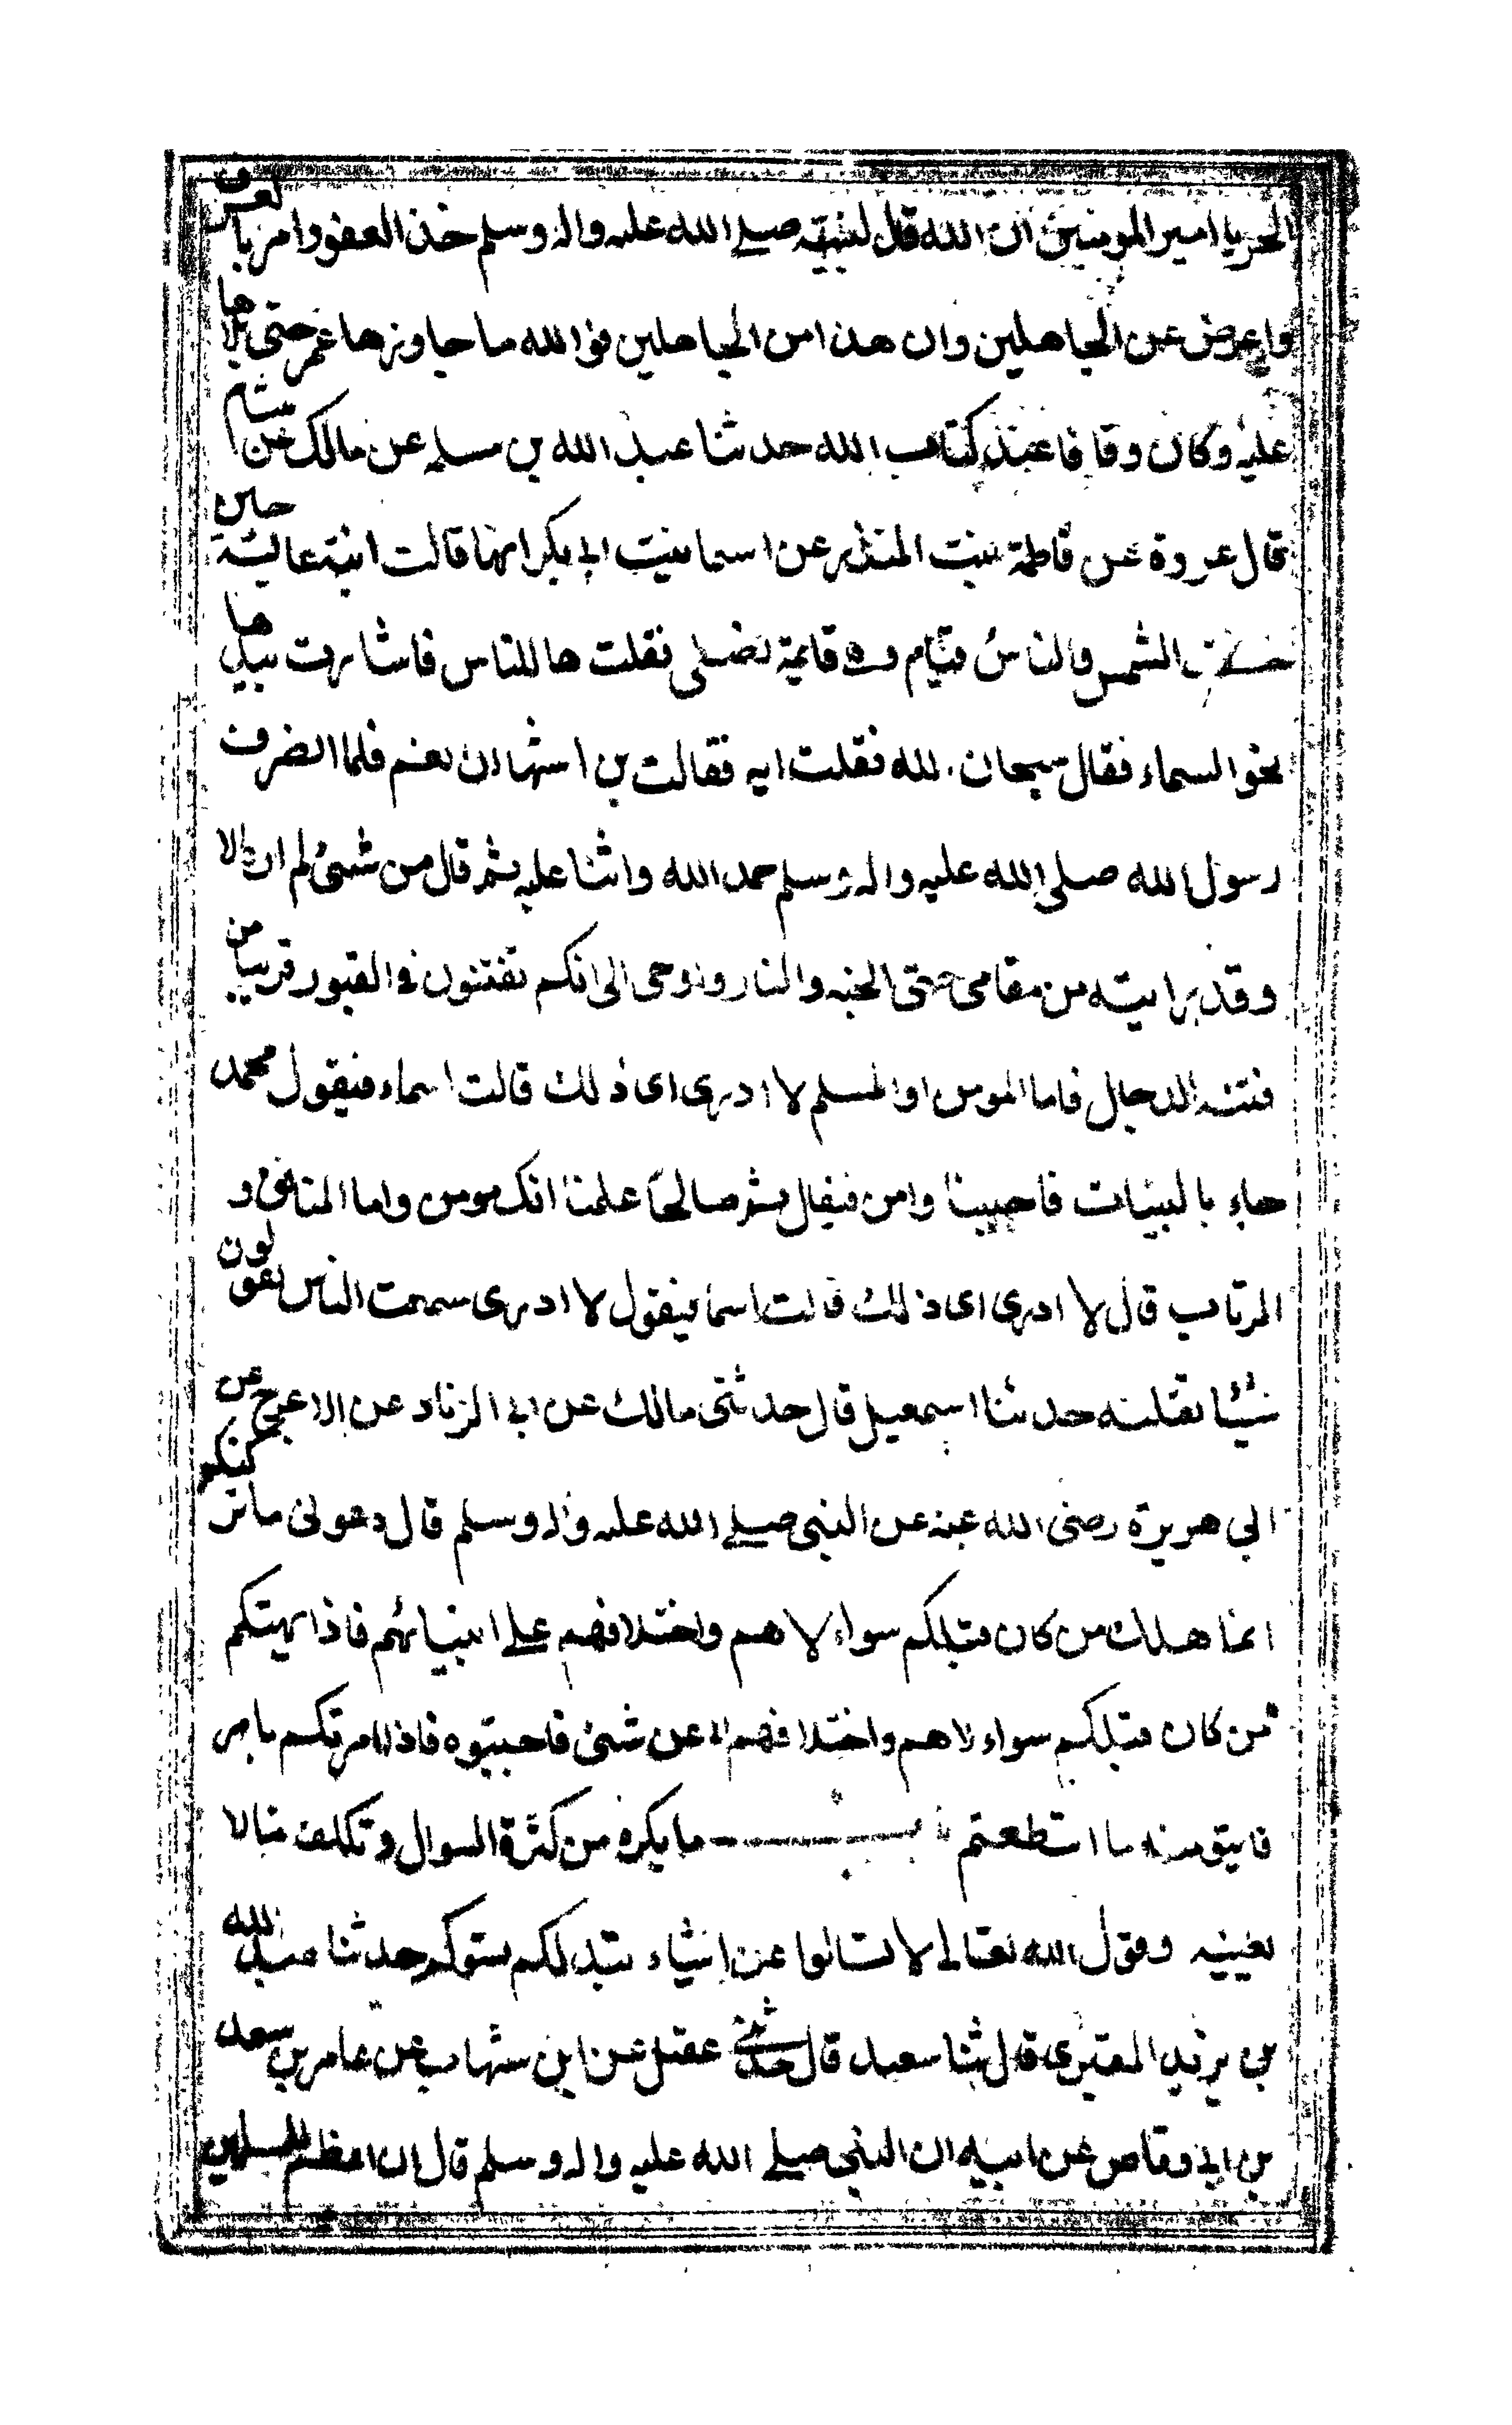 الحر يا امير المومنين ان الله قال لنبيه صلے الله عليه واله وسلم خذ العفو وامر بالعرف
واعرض عن الجاهلين وان هذا من الجاهلين فوالله ما جاوزها عمر حتى تلاها
عليه وكان وقافا عند كتاب الله حدثنا عبد الله بن مسلمه عن مالك عن هشام
قال عروة عن فاطمة بنت المنذر عن اسما بنت ابى بكر انها قالت اتيت عائشة حين
خسفت الشمس والناس قيام وهى قايمة تصلى فقلت ما للناس فاشارت بيدها
نحو السماء فقال سبحان الله فقلت ايه فقالت بن اشها ان نعم فلما انصرف
رسول الله صلى الله عليه واله وسلم حمد الله واثنا عليه ثم قال من شىئ لم اره الا
وقد رايته من مقامى حتى الجنه والنار واوحى الى انكم تفتنون فى القبور قريبا من
فتنه الدجال فاما المومن او المسلم لا ادرى اى ذلك قالت اسماء فيقول محمد
جاء بالبينات فاجبنا وامن فيقال ثم صالحا علمنا انك مومن واما المنافق و
المرتاب قال لا ادرى اى ذلك قالت اسما فيقول لا ادرى سمعت الناس يقولون
شيئا فقلته حدثنا اسمعيل قال حدثنى مالك عن ابى الزناد عن الاعرج عن
ابى هريرة رضى الله عنه عن النبى صلے الله عليه واله وسلم قال دعونى ما تركتكم
انما هلك من كان قبلكم سواءلاهم واختلافهم علے انبيائهم فاذا نهيتكم
من كان قبلكم سواءلاهم واختلافهم الى عن شىئ فاجتنبوه فاذا امرتكم بامر
فايتو منه ما استطعتم باب ما يكره من كثرة السوال وتكلف مالا
يعنيه وقول الله تعالى لا تسالوا عن اشياء تبد لكم تسوكم حدثنا عبد الله
بن يزيد المقرى قال ثنا سعيد قال حدثنى عقيل عن ابن شهاب عن عامر بن سعد
بن ابى وقاص عن ابيه ان النبى صلے الله عليه واله وسلم قال ان اعظم المسلمين